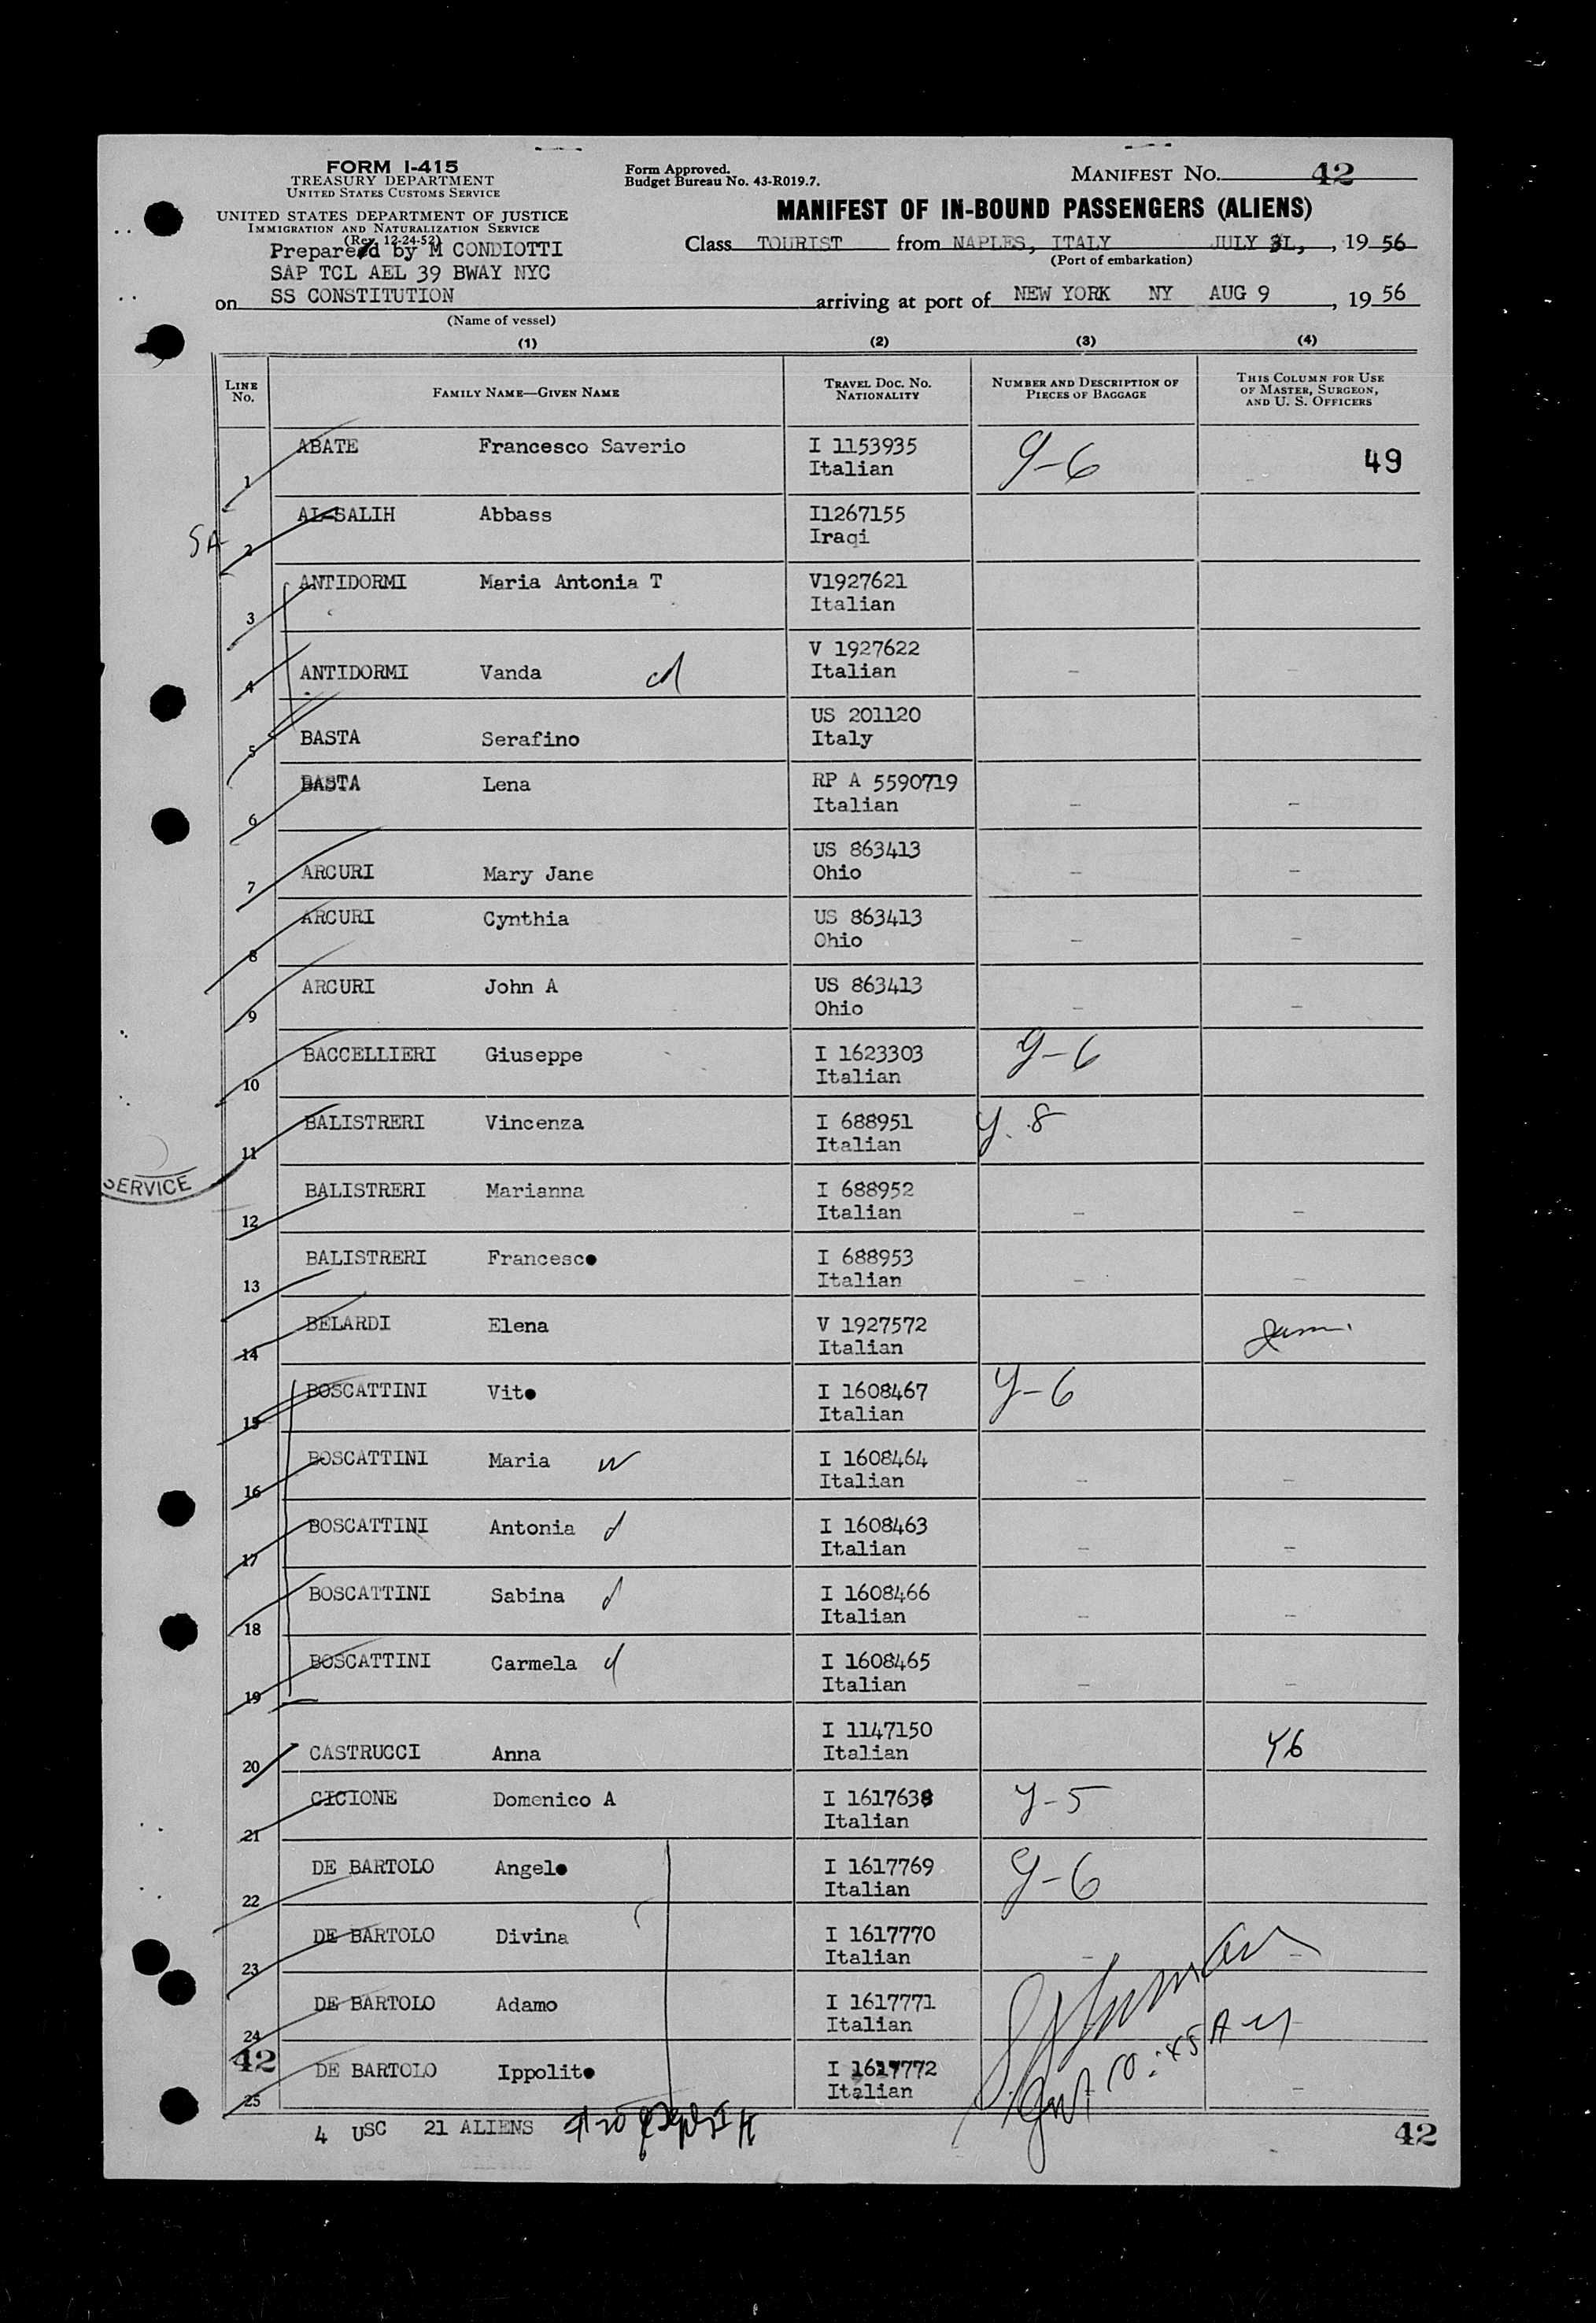 FORM I-415
TREASURY DEPARTMENT
UNITED STATES CUSTOMS SERVICE
UNITED STATES DEPARTMENT OF JUSTICE
IMMIGRATION AND NATURALIZATION SERVICE
(Rev. 12-24-52)
Prepared by M CONDIOTTI
SAP TCL AEL 39 BWAY NYC
on SS CONSTITUTION
(Name of vessel)
Form Approved.
Budget Bureau No. 43-R019.7.
MANIFEST NO. 42
MANIFEST OF IN-BOUND PASSENGERS (ALIENS)
Class TOURIST from NAPLES, ITALY JULY 31, , 19 56
(Port of embarkation)
arriving at port of NEW YORK NY AUG 9 , 19 56
(1) (2) (3) (4)
LINE No. FAMILY NAME—GIVEN NAME TRAVEL DOC. NO. NATIONALITY NUMBER AND DESCRIPTION OF PIECES OF BAGGAGE THIS COLUMN FOR USE OF MASTER, SURGEON, AND U. S. OFFICERS
1 ABATE Francesco Saverio I 1153935 Italian 9-6 49
SA 2 AL-SALIH Abbass I1267155 Iraqi
3 ANTIDORMI Maria Antonia T V1927621 Italian
4 ANTIDORMI Vanda d V 1927622 Italian - -
5 BASTA Serafino US 201120 Italy
6 BASTA Lena RP A 5590719 Italian - -
7 ARCURI Mary Jane US 863413 Ohio - -
8 ARCURI Cynthia US 863413 Ohio - -
9 ARCURI John A US 863413 Ohio - -
10 BACCELLIERI Giuseppe I 1623303 Italian Y-6
11 BALISTRERI Vincenza I 688951 Italian Y.8
12 BALISTRERI Marianna I 688952 Italian - -
13 BALISTRERI Francesco I 688953 Italian - -
14 BELARDI Elena V 1927572 Italian
15 BOSCATTINI Vito I 1608467 Italian Y-6
16 BOSCATTINI Maria w I 1608464 Italian - -
17 BOSCATTINI Antonia d I 1608463 Italian - -
18 BOSCATTINI Sabina d I 1608466 Italian - -
19 BOSCATTINI Carmela d I 1608465 Italian - -
20 CASTRUCCI Anna I 1147150 Italian Y6
21 CICIONE Domenico A I 1617638 Italian Y-5
22 DE BARTOLO Angelo I 1617769 Italian Y-6
23 DE BARTOLO Divina I 1617770 Italian - -
24 DE BARTOLO Adamo I 1617771 Italian
25 DE BARTOLO Ippolito I 1617772 Italian -
SERVICE
42
4 USC 21 ALIENS
42